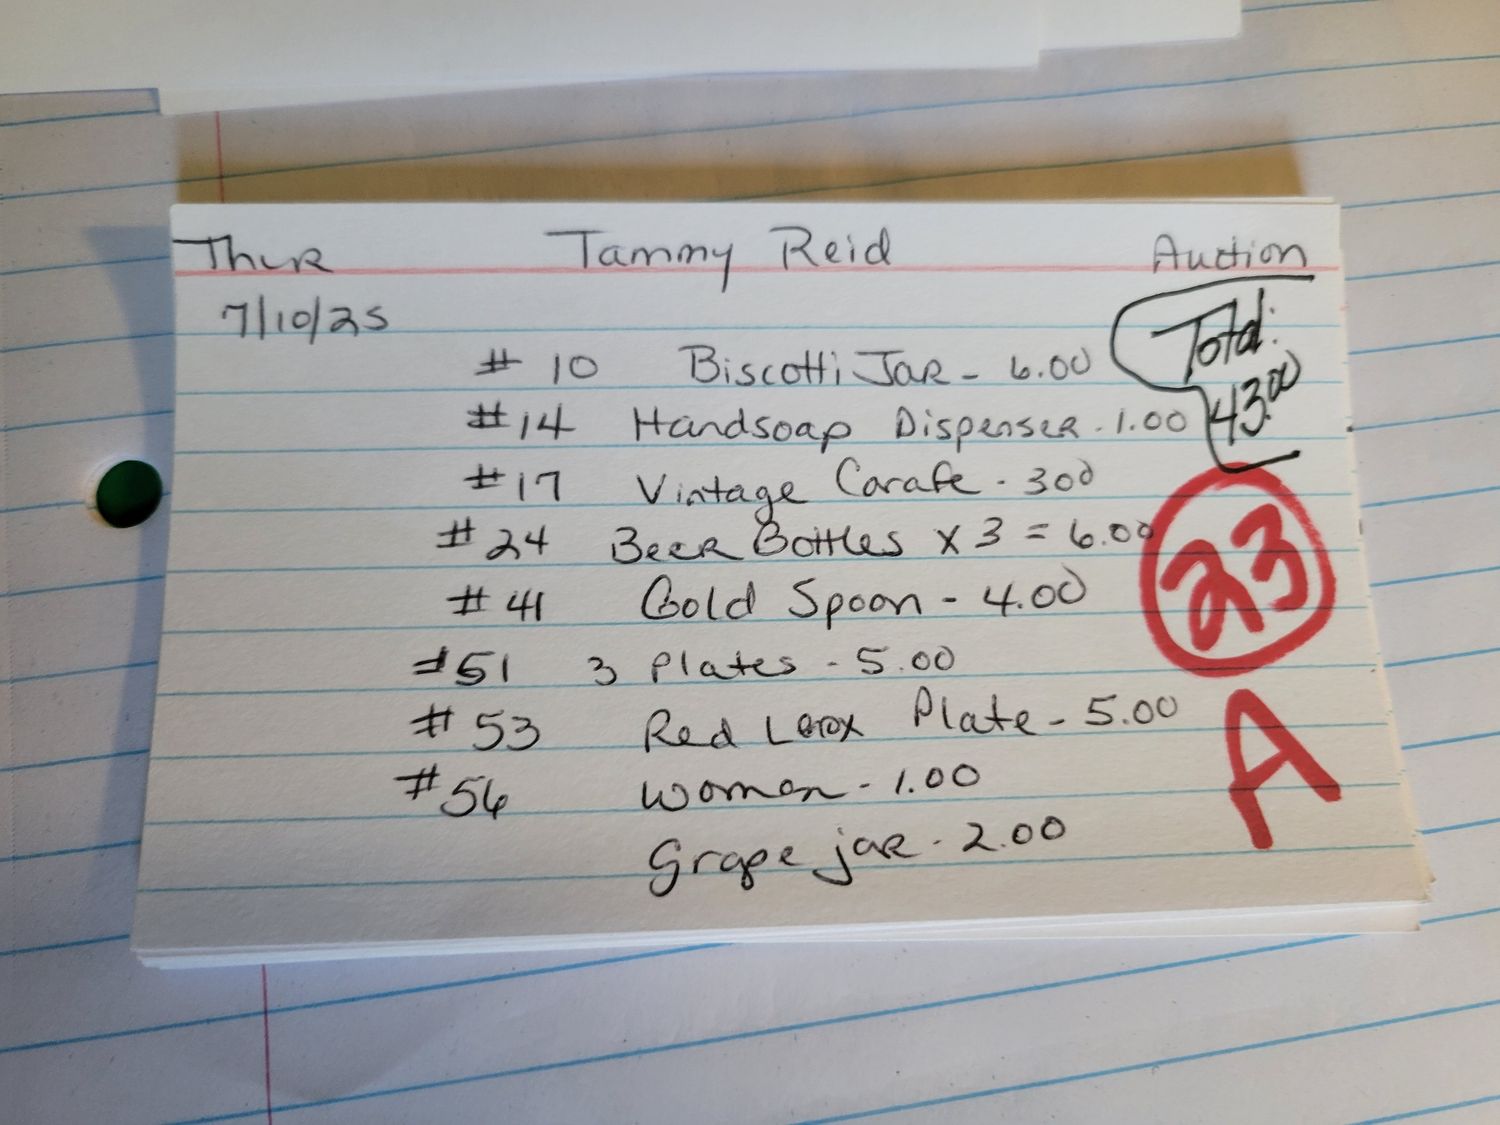 Thur Tammy Reid Auction
7/10/25
Total:
43.00
# 10 Biscotti Jar - 6.00
#14 Handsoap Dispenser . 1.00
#17 Vintage Carafe . 300
#24 Beer Bottles x 3 = 6.00
# 41 Gold Spoon - 4.00
#51 3 Plates - 5.00
# 53 Red Plate - 5.00
#56 women - 1.00
Grape jar . 2.00
23
A